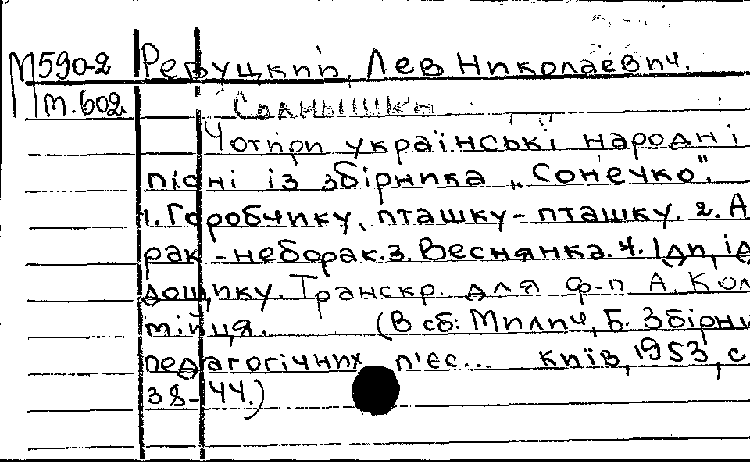 М590-2 Ревуцкий, Лев Николаевич.
Iт.602 Солнышко
Чотири українські народні
пісні із збірника „Сонечко".
1. Горобчику, пташку-пташку. 2. А
рак-неборак. 3. Веснянка. 4. Іди, ід
дощику. Транскр. для ф-п А. Кол
мійця. (В сб: Милич, Б. Збірни
педагогічних п'єс... Київ, 1953, с
38-44.)